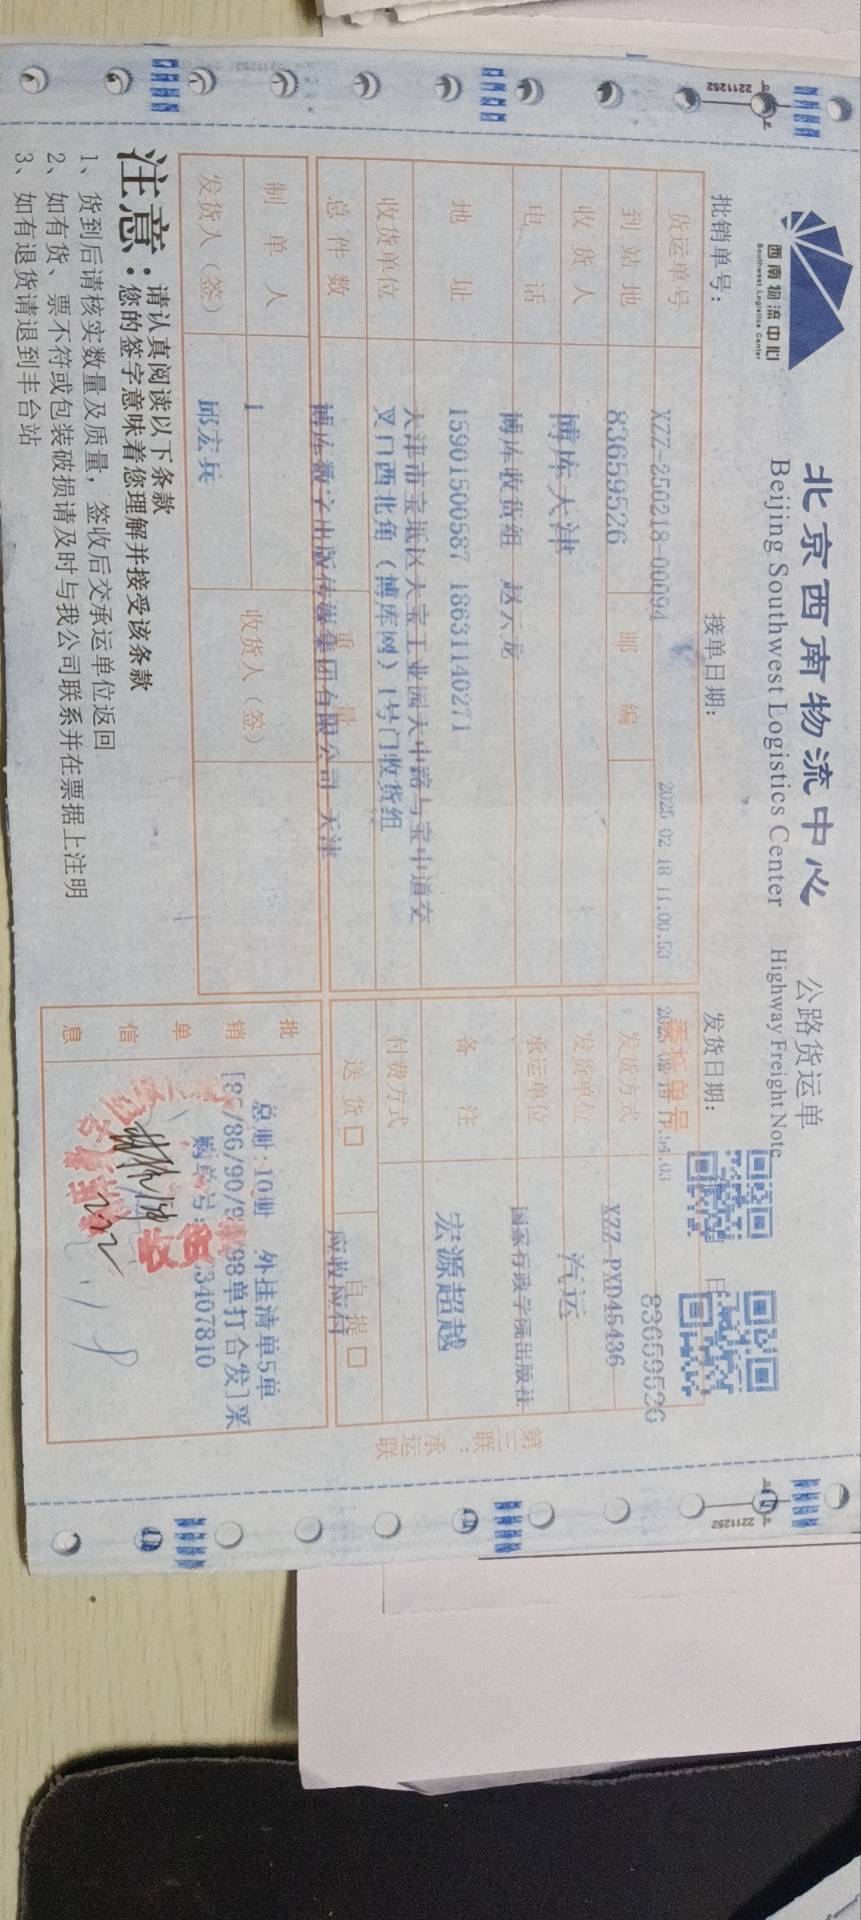 西南物流中心
Southwest Logistics Center
北京西南物流中心 公路货运单
Beijing Southwest Logistics Center Highway Freight Note
批销单号：
接单日期：
发货日期：
日
XZZ-250218-00094
2025 02 18 11:00:53
83659526
货运单号
83659526
委托单号
XZZ-PXD45436
到站地
博库天津
邮编
发货方式
汽运
收货人
博库收货组 赵云龙
发货单位
国家行政学院出版社
电话
15901500587 18631140271
承运单位
宏源超越
地址
天津市宝坻区天宝工业园天中路与宝中道交
叉口西北角（博库网）1号门收货组
备注
收货单位
博库数字出版传媒集团有限公司 天津
付费方式
应收应付
总件数
1
重量
送货□
自提□
制单人
邱宏兵
收货人（签）
发货人（签）
批销单信息
总册:10册 外挂清单5单
98单打合发]采
3407810
第三联：承运联
注意：
请认真阅读以下条款
您的签字意味着您理解并接受该条款
1、货到后请核实数量及质量，签收后交承运单位返回
2、如有货、票不符或包装破损请及时与我公司联系并在票据上注明
3、如有退货请退到丰台站
2211262
2211262